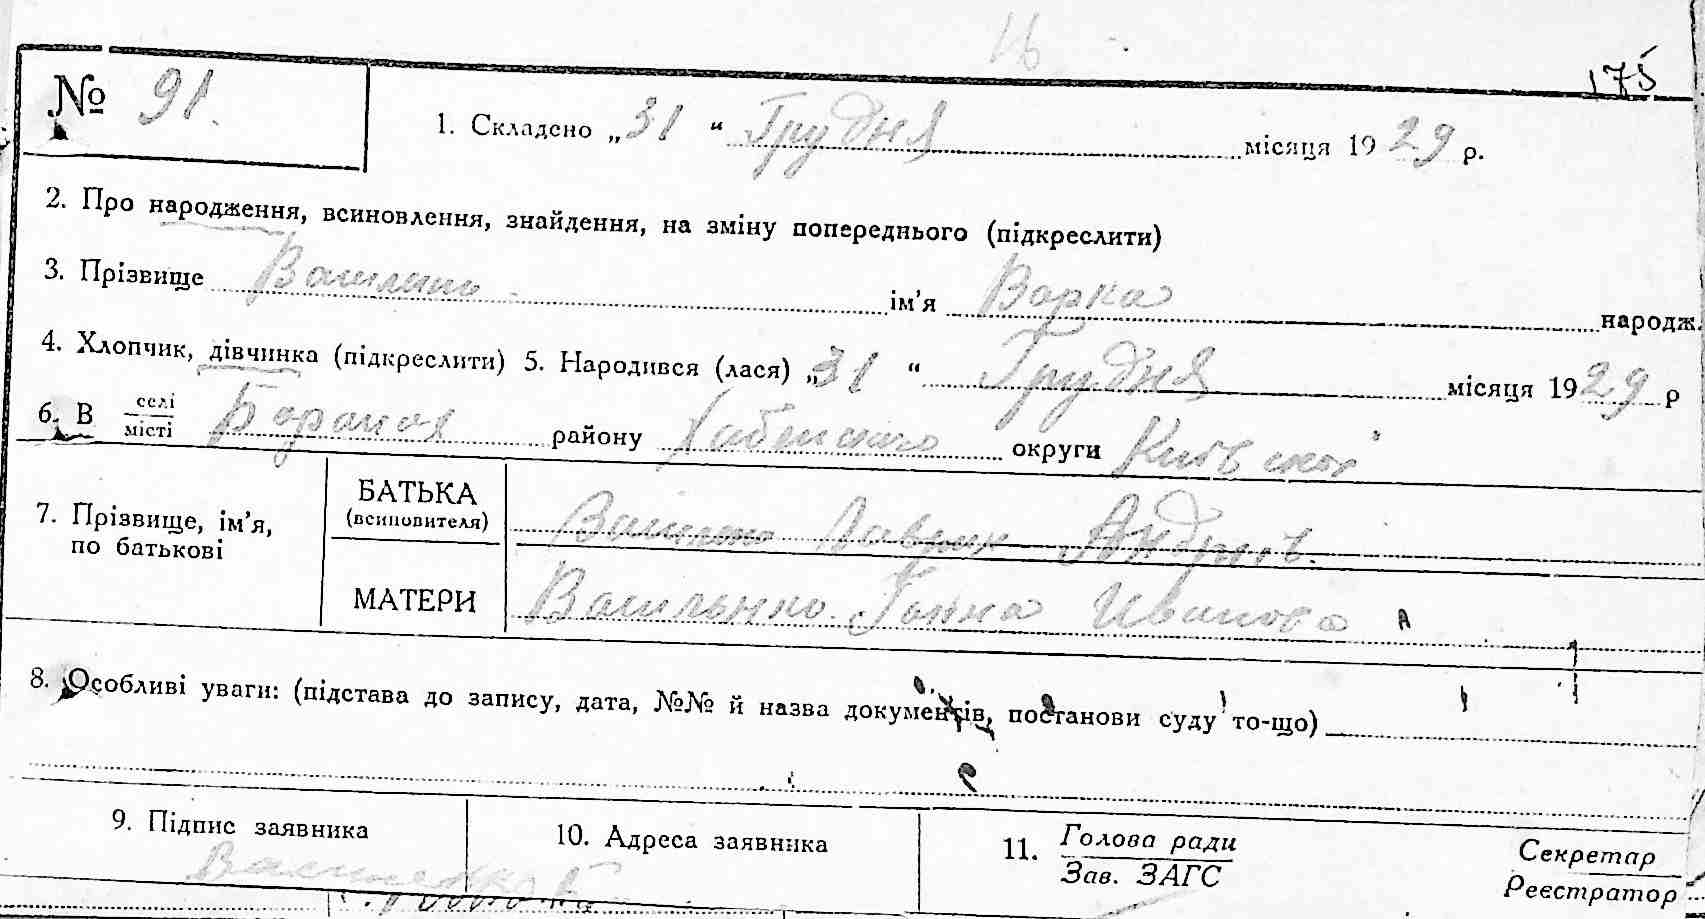 16
175
№ 91.
1. Складено „31“ Грудня місяця 1929 р.
2. Про народження, всиновлення, знайдення, на зміну попереднього (підкреслити)
3. Прізвище ім’я Варка народж.
4. Хлопчик, дівчинка (підкреслити) 5. Народився (лася) „31“ Грудня місяця 1929 р
6. В селі місті району Хабенского округи
7. Прізвище, ім’я, по батькові
БАТЬКА (всиновителя) Лаврин
МАТЕРИ Васильнко Ганна Иванова
8. Особливі уваги: (підстава до запису, дата, №№ й назва документів, постанови суду то-що)
9. Підпис заявника
10. Адреса заявника
11. Голова ради Зав. ЗАГС
Секретар Реєстратор